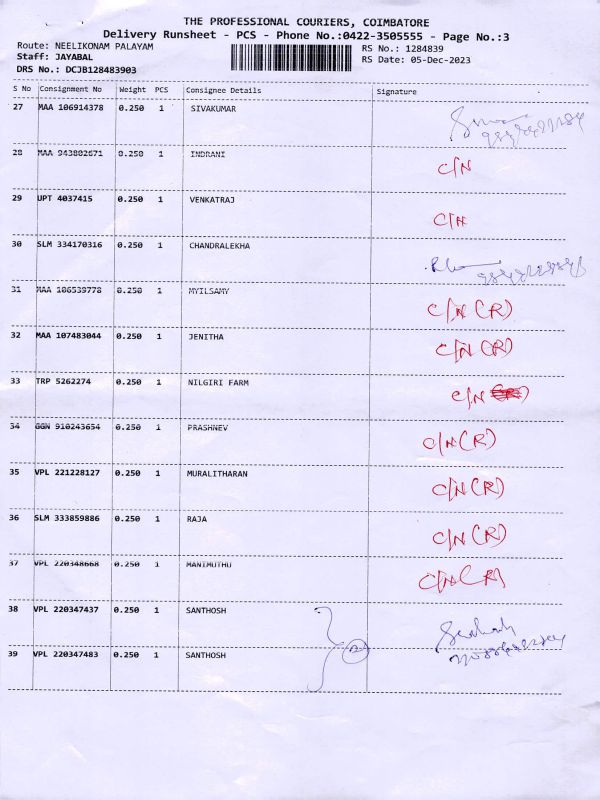 THE PROFESSIONAL COURIERS, COIMBATORE
Delivery Runsheet - PCS - Phone No.:0422-3505555 - Page No.:3
Route: NEELIKONAM PALAYAM RS No.: 1284839
Staff: JAYABAL RS Date: 05-Dec-2023
DRS No.: DCJB128483903
S No Consignment No Weight PCS Consignee Details Signature
27 MAA 106914378 0.250 1 SIVAKUMAR
28 MAA 943802671 0.250 1 INDRANI C/N
29 UPT 4037415 0.250 1 VENKATRAJ C/N
30 SLM 334170316 0.250 1 CHANDRALEKHA
31 MAA 106539778 0.250 1 MYILSAMY C/N (R)
32 MAA 107483044 0.250 1 JENITHA C/N (R)
33 TRP 5262274 0.250 1 NILGIRI FARM C/N
34 GGN 910243654 0.250 1 PRASHNEV C/N (R)
35 VPL 221228127 0.250 1 MURALITHARAN C/N (R)
36 SLM 333859886 0.250 1 RAJA C/N (R)
37 VPL 220348668 0.250 1 MANIMUTHU C/N (R)
38 VPL 220347437 0.250 1 SANTHOSH
39 VPL 220347483 0.250 1 SANTHOSH